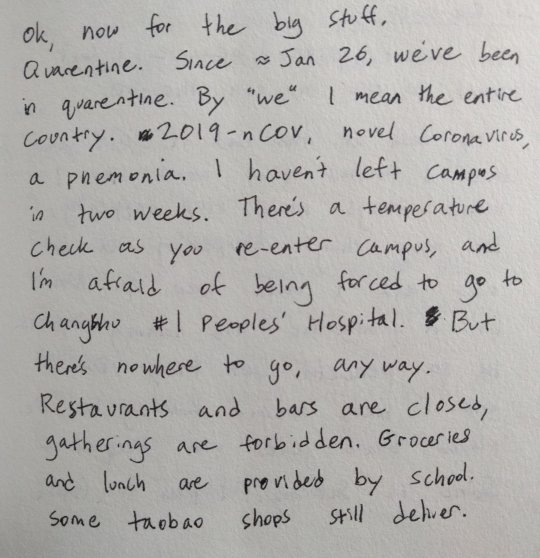 Ok, now for the big stuff.
Quarentine. Since ≈ Jan 26, we've been
in quarentine. By "we" I mean the entire
country. 2019-nCOV, novel Coronavirus,
a pnemonia. I haven't left campus
in two weeks. There's a temperature
check as you re-enter campus, and
I'm afraid of being forced to go to
#1 Peoples' Hospital. But
there's nowhere to go, any way.
Restaurants and bars are closed,
gatherings are forbidden. Groceries
and lunch are provided by school.
Some taobao shops still deliver.